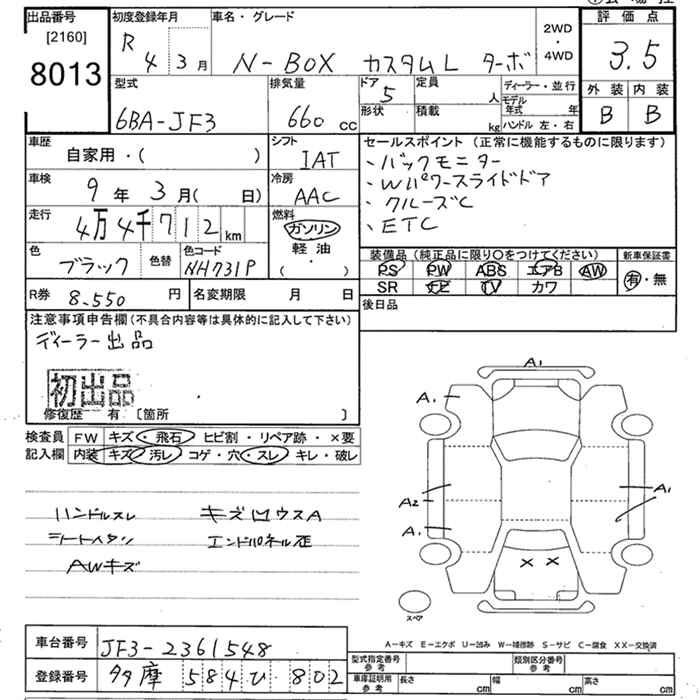 出品番号 [2160] 8013
初度登録年月 R 4 3月
車名・グレード N-BOX カスタムL ターボ
2WD・4WD
評価点 3.5
外装 B 内装 B
型式 6BA-JF3
排気量 660 cc
ドア 5
形状
定員 人
積載 kg
ディーラー・並行
モデル年式 年
ハンドル 左・右
車歴 自家用・( )
シフト IAT
車検 9年 3月( 日)
冷房 AAC
走行 4万4千712 km
燃料 ガソリン 軽油・( )
色 ブラック 色替
色コード NH731P
R券 8.550 円
名変期限 月 日
セールスポイント(正常に機能するものに限ります)
、バックモニター
、Wパワースライドドア
、クルーズC
、ETC
装備品(純正品に限り〇をつけてください) 新車保証書
PS PW ABS エアB AW 有・無
SR ナビ TV カワ
後日品
注意事項申告欄(不具合内容等は具体的に記入して下さい)
ディーラー出品
初出品
修復歴 有〔箇所 〕
検査員 FW キズ・飛石・ヒビ割・リペア跡・×要
記入欄 内装 キズ・汚レ コゲ・穴・スレ・キレ・破レ
ハンドルスレ キズ凹ウスA
シートヘタリ エンドパネル歪
AWキズ
A1
A1
A2
A1
A1
× ×
スペア
A-キズ E-エクボ U-凹み W-補修跡 S-サビ C-腐食 XX-交換済
車台番号 JF3-2361548
登録番号 多摩 584 ひ 802
型式指定番号 参考 類別区分番号 参考
車庫証明用 参考 長さ cm 幅 cm 高さ cm